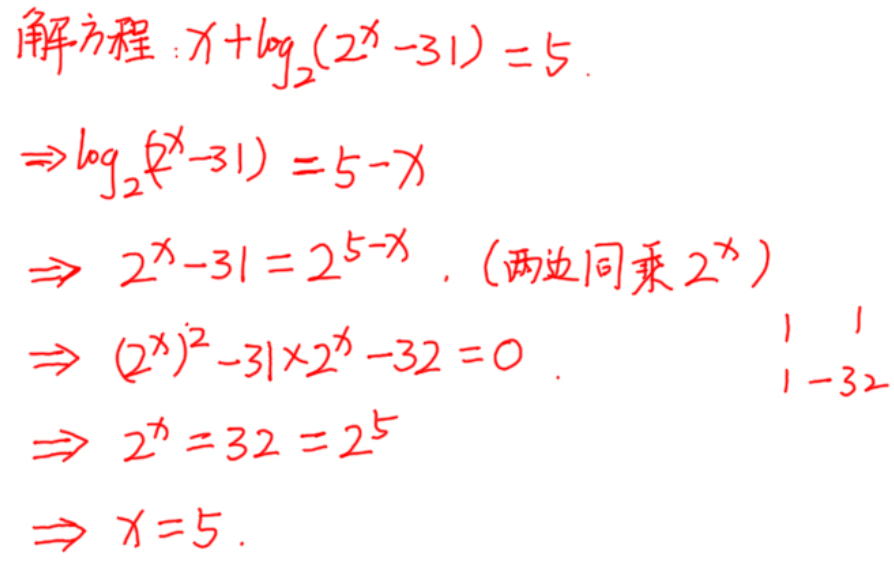 解方程:x+log₂(2ˣ-31)=5.
⇒log₂(2ˣ-31)=5-x
⇒ 2ˣ-31=2⁵⁻ˣ.(两边同乘2ˣ)
⇒ (2ˣ)²-31×2ˣ-32=0.
1 1
1 -32
⇒ 2ˣ=32=2⁵
⇒ x=5.